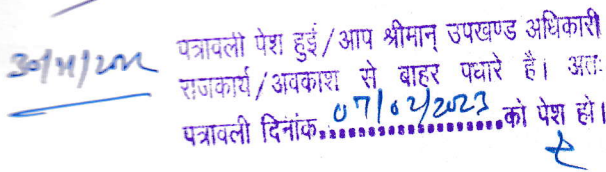 30/11/2022
पत्रावली पेश हुई/आप श्रीमान् उपखण्ड अधिकारी
राजकार्य/अवकाश से बाहर पधारे है। अतः
पत्रावली दिनांक 07/02/2023 को पेश हो।